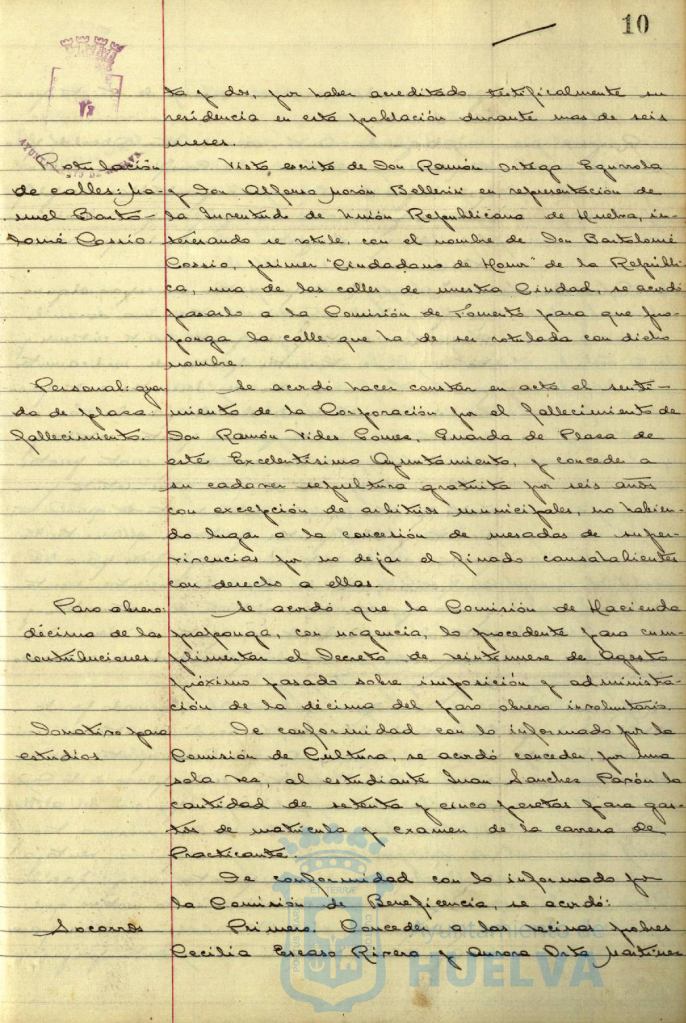 10
ta y dos, por haber acreditado testificalmente su
residencia en esta población durante mas de seis
meses.
Rotulación
de calles: Ma-
nuel Barto-
lomé Cossio.
Visto escrito de Don Ramón Ortega
y Don Alfonso Morón en representación de
la Juventud de Unión Republicana de Huelva, in-
teresando se rotule, con el nombre de Don Bartolomé
Cossio, primer "Ciudadano de Honor" de la Repúbli-
ca, una de las calles de nuestra Ciudad, se acordó
pasarlo a la Comisión de Fomento para que pro-
ponga la calle que ha de ser rotulada con dicho
nombre.
Personal: guar-
da de plaza
fallecimiento.
Se acordó hacer constar en acta el senti-
miento de la Corporación por el fallecimiento de
Don Ramón Vides Gomez, Guarda de Plaza de
este Excelentísimo Ayuntamiento, y conceder a
su cadaver sepultura gratuita por seis años
con excepción de arbitrios municipales, no habien-
do lugar a la concesión de mesadas de super-
vivencias por no dejar el finado causahabientes
con derecho a ellas.
Paro obrero:
décima de las
contribuciones.
Se acordó que la Comisión de Hacienda
proponga, con urgencia, lo procedente para cum-
plimentar el Decreto de veintinueve de Agosto
próximo pasado sobre imposición y administra-
ción de la décima del paro obrero involuntario.
Donativo para
estudios
De conformidad con lo informado por la
Comisión de Cultura, se acordó conceder, por una
sola vez, al estudiante Juan Sanchez Pavón la
cantidad de setenta y cinco pesetas para gas-
tos de matrícula y examen de la carrera de
Practicante.
De conformidad con lo informado por
la Comisión de Beneficencia, se acordó:
Socorros
Primero. Conceder a las vecinas pobres
Cecilia Escaso Rivera y Aurora Orta Martinez
HUELVA